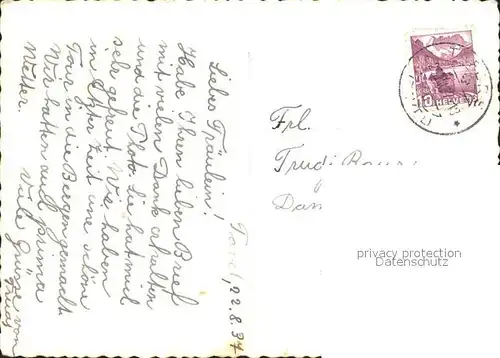 22.8.37
Liebes Fräulein!
Habe Ihren lieben Brief
mit vielen Dank erhalten
und die Photo die hat mich
sehr gefreut. Wir haben
in Zeit eine schöne
Tour in die Bergen gemacht
Wir hatten auch prima
Wetter. Viele Grüsse von
Trudi
Frl.
Trudi
10 HELVETIA
privacy protection
Datenschutz